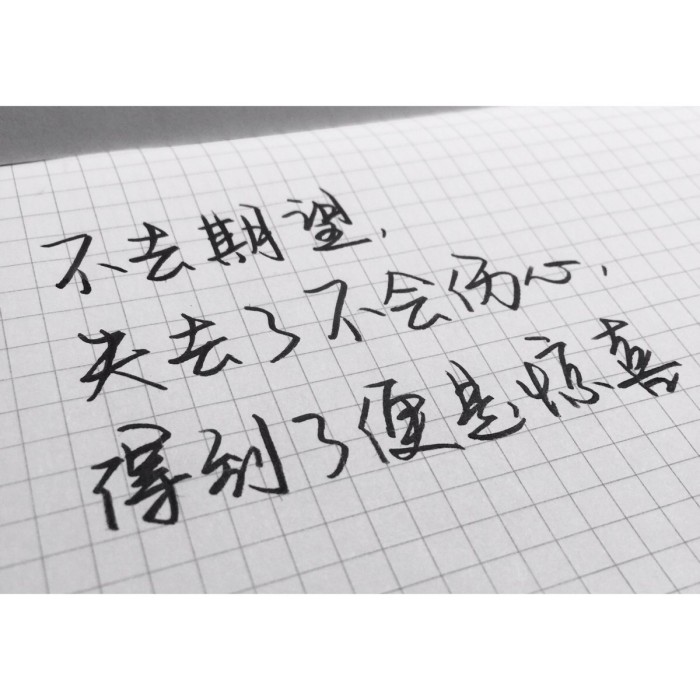 不去期望，
失去了不会伤心，
得到了便是惊喜